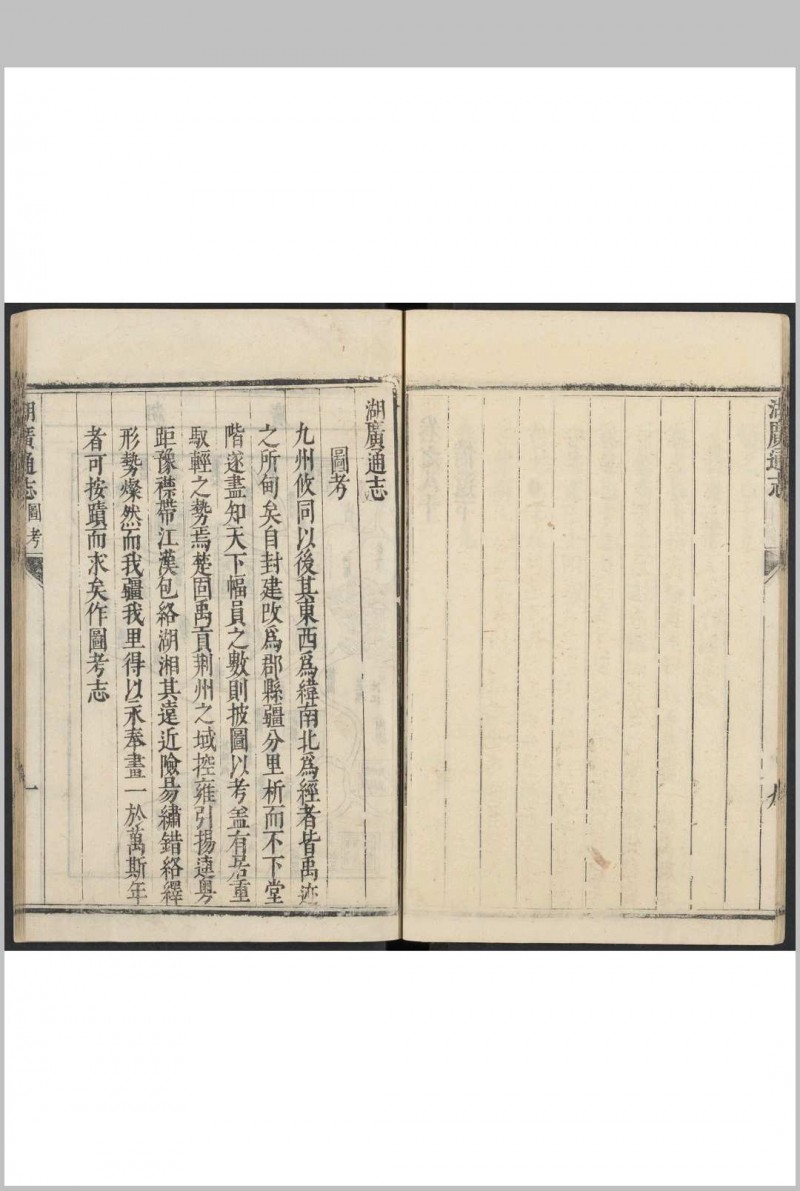 湖廣通志
九
湖廣通志
圖考
九州攸同以後其東西爲緯南北爲經者皆禹迹
之所甸矣自封建改爲郡縣疆分里析而不下堂
階遂盡知天下幅員之數則披圖以考盖有居重
馭輕之勢焉楚固禹貢荆州之域控雍引揚遶粤
距豫襟帶江漢包絡湖湘其遠近險昜繡錯絡繹
形勢燦然而我疆我里得以永奉畫一於萬斯年
者可按蹟而求矣作圖考志
湖廣通志
圖考
一